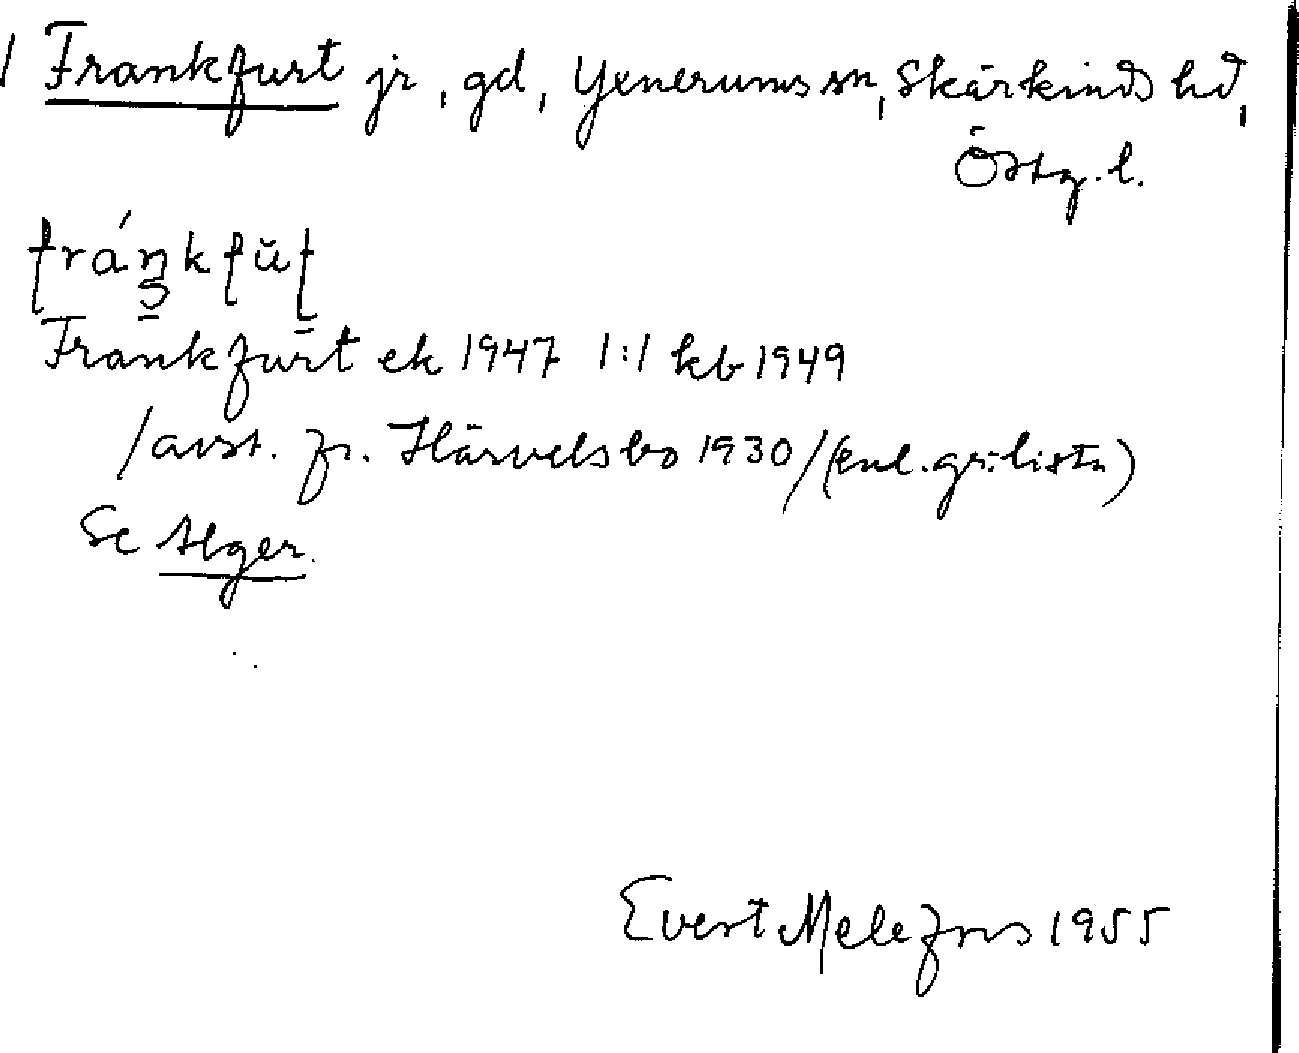 Frankfurt jr, gd, Yxnerums sn, Skärkinds hd,
Östg. l.
Frankfurt ek 1947 1:1 kb 1949
/avst. fr. Härvelsbo 1930/(enl. gr:lista)
Se Alger.
Evert Melefors 1955